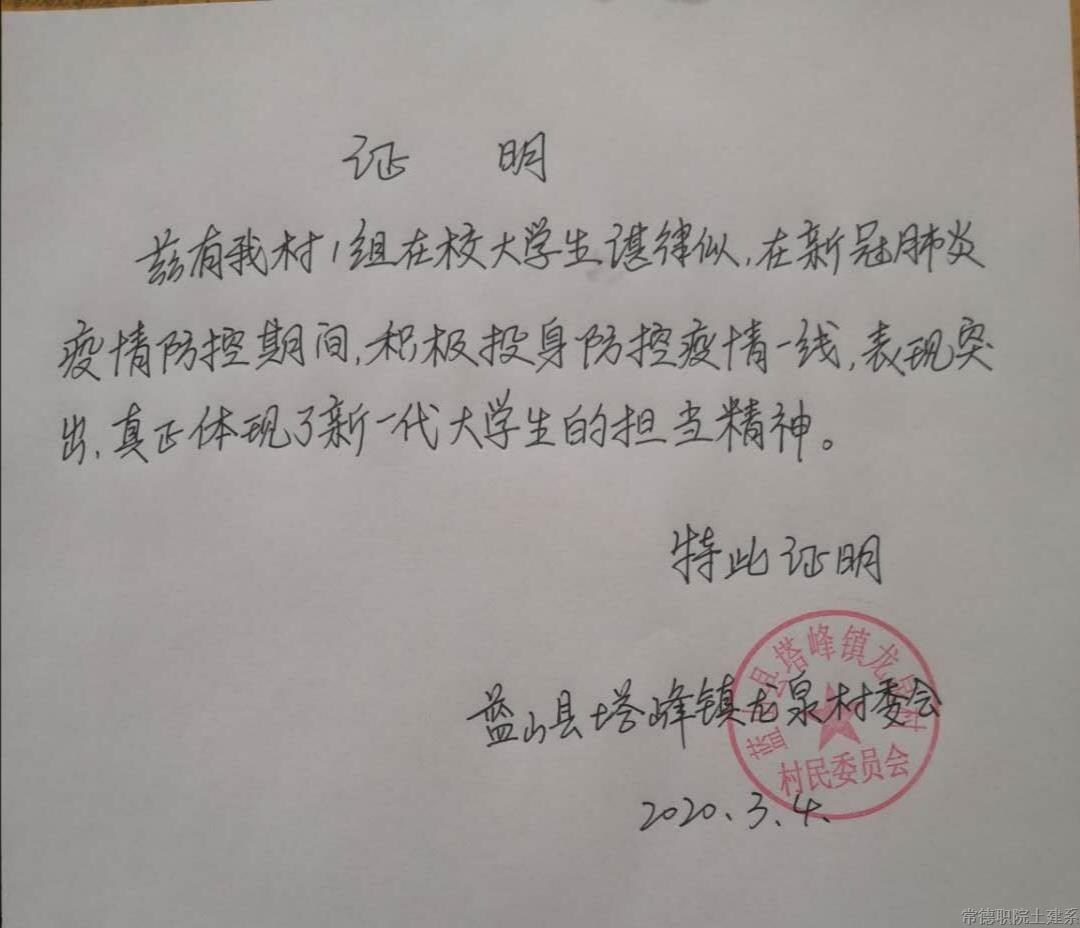 证 明
兹有我村1组在校大学生谌律似,在新冠肺炎
疫情防控期间,积极投身防控疫情一线,表现突
出,真正体现了新一代大学生的担当精神。
特此证明
蓝山县塔峰镇龙泉村
蓝山县塔峰镇龙泉村委会
村民委员会
2020、3、4、
常德职院土建系